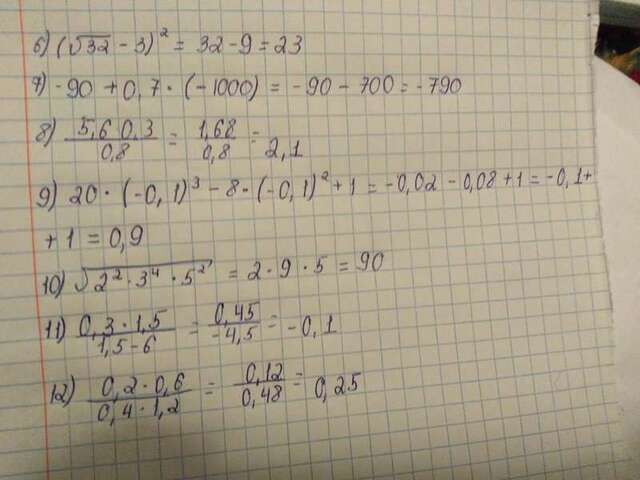 6) (√32 - 3)² = 32 - 9 = 23
7) -90 + 0,7 · (-1000) = -90 - 700 = -790
8) 5,6 0,3 / 0,8 = 1,68 / 0,8 = 2,1
9) 20 · (-0,1)³ - 8 · (-0,1)² + 1 = -0,02 - 0,08 + 1 = -0,1 +
+ 1 = 0,9
10) √2² · 3⁴ · 5² = 2 · 9 · 5 = 90
11) 0,3 · 1,5 / 1,5 - 6 = 0,45 / -4,5 = -0,1
12) 0,2 · 0,6 / 0,4 · 1,2 = 0,12 / 0,48 = 0,25